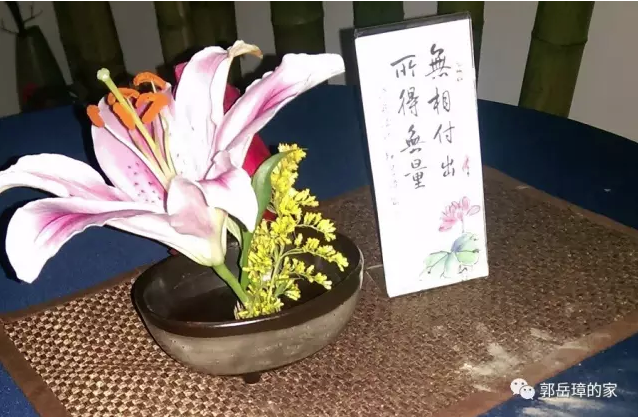 無相付出
所得無量
郭岳璋的家